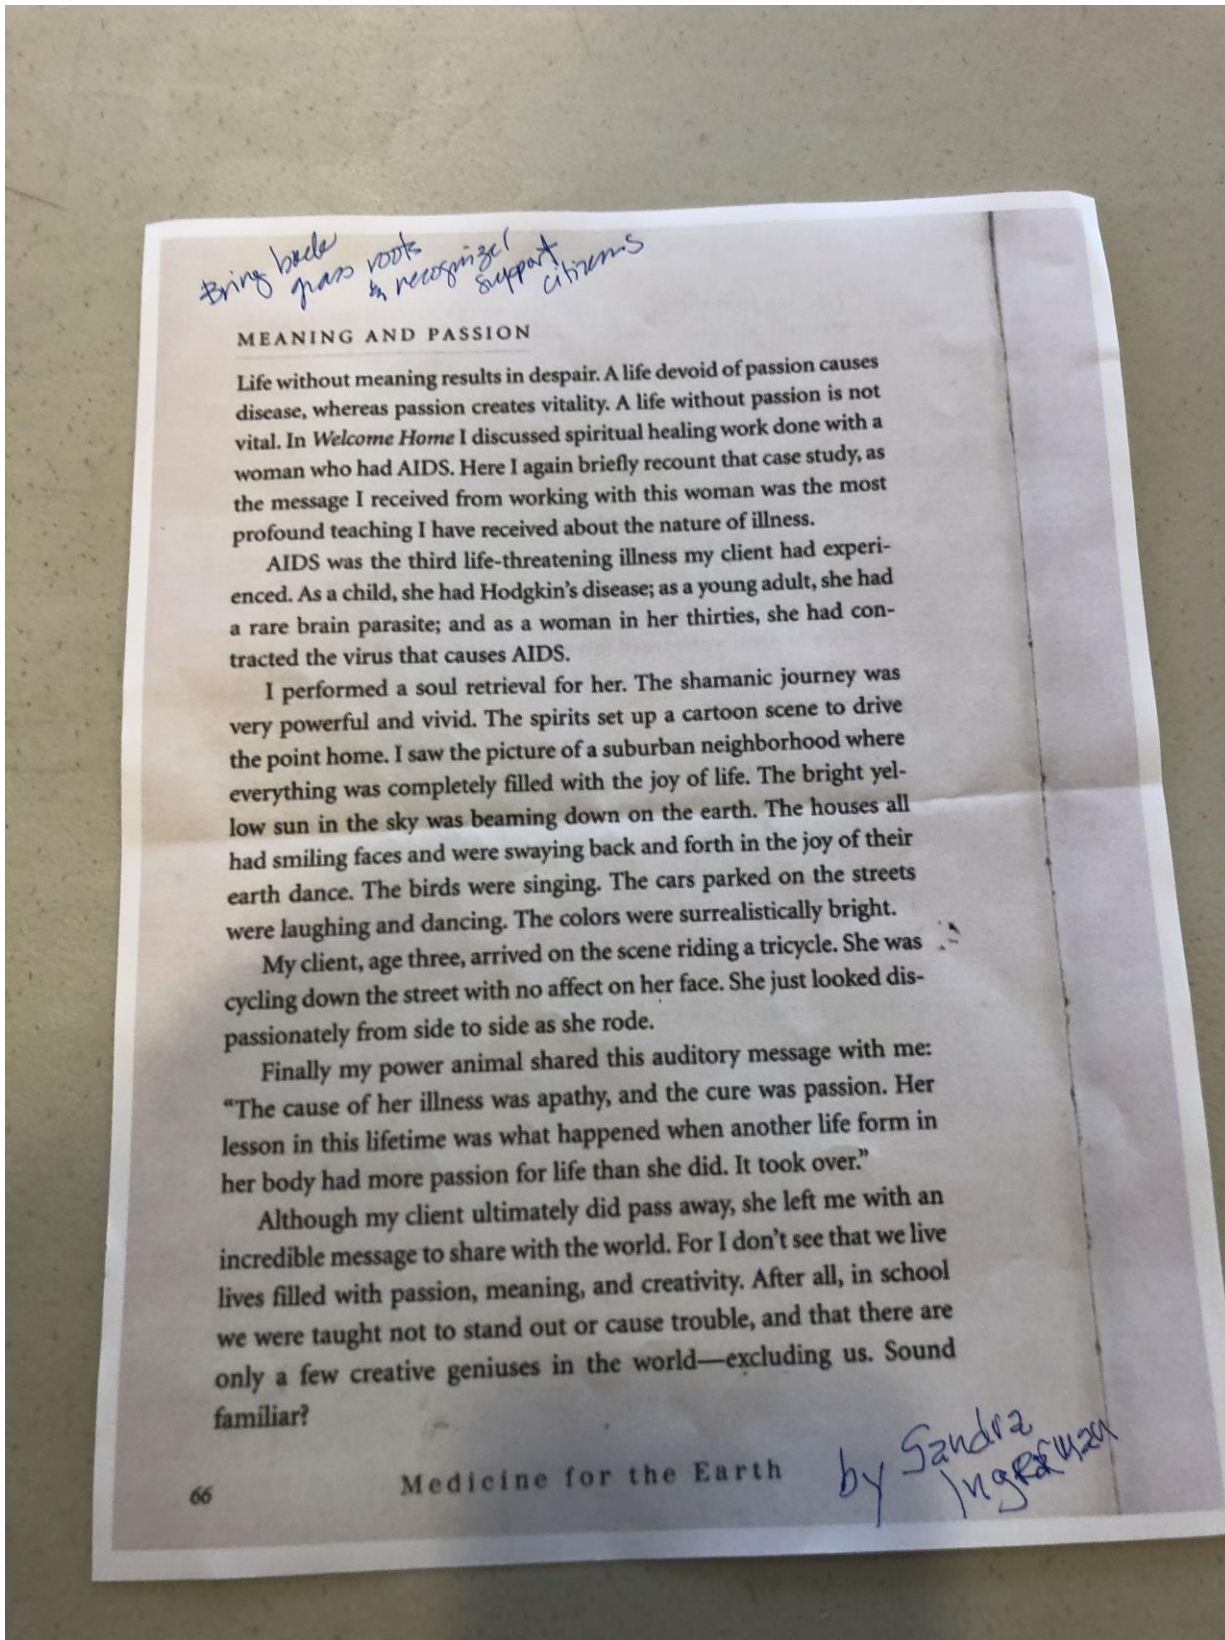 Bring back
grass roots
& recognize/
support
citizens
MEANING AND PASSION
Life without meaning results in despair. A life devoid of passion causes
disease, whereas passion creates vitality. A life without passion is not
vital. In Welcome Home I discussed spiritual healing work done with a
woman who had AIDS. Here I again briefly recount that case study, as
the message I received from working with this woman was the most
profound teaching I have received about the nature of illness.
AIDS was the third life-threatening illness my client had experi-
enced. As a child, she had Hodgkin's disease; as a young adult, she had
a rare brain parasite; and as a woman in her thirties, she had con-
tracted the virus that causes AIDS.
I performed a soul retrieval for her. The shamanic journey was
very powerful and vivid. The spirits set up a cartoon scene to drive
the point home. I saw the picture of a suburban neighborhood where
everything was completely filled with the joy of life. The bright yel-
low sun in the sky was beaming down on the earth. The houses all
had smiling faces and were swaying back and forth in the joy of their
earth dance. The birds were singing. The cars parked on the streets
were laughing and dancing. The colors were surrealistically bright.
My client, age three, arrived on the scene riding a tricycle. She was
cycling down the street with no affect on her face. She just looked dis-
passionately from side to side as she rode.
Finally my power animal shared this auditory message with me:
“The cause of her illness was apathy, and the cure was passion. Her
lesson in this lifetime was what happened when another life form in
her body had more passion for life than she did. It took over.”
Although my client ultimately did pass away, she left me with an
incredible message to share with the world. For I don't see that we live
lives filled with passion, meaning, and creativity. After all, in school
we were taught not to stand out or cause trouble, and that there are
only a few creative geniuses in the world—excluding us. Sound
familiar?
66
Medicine for the Earth
by Sandra
Ingerman